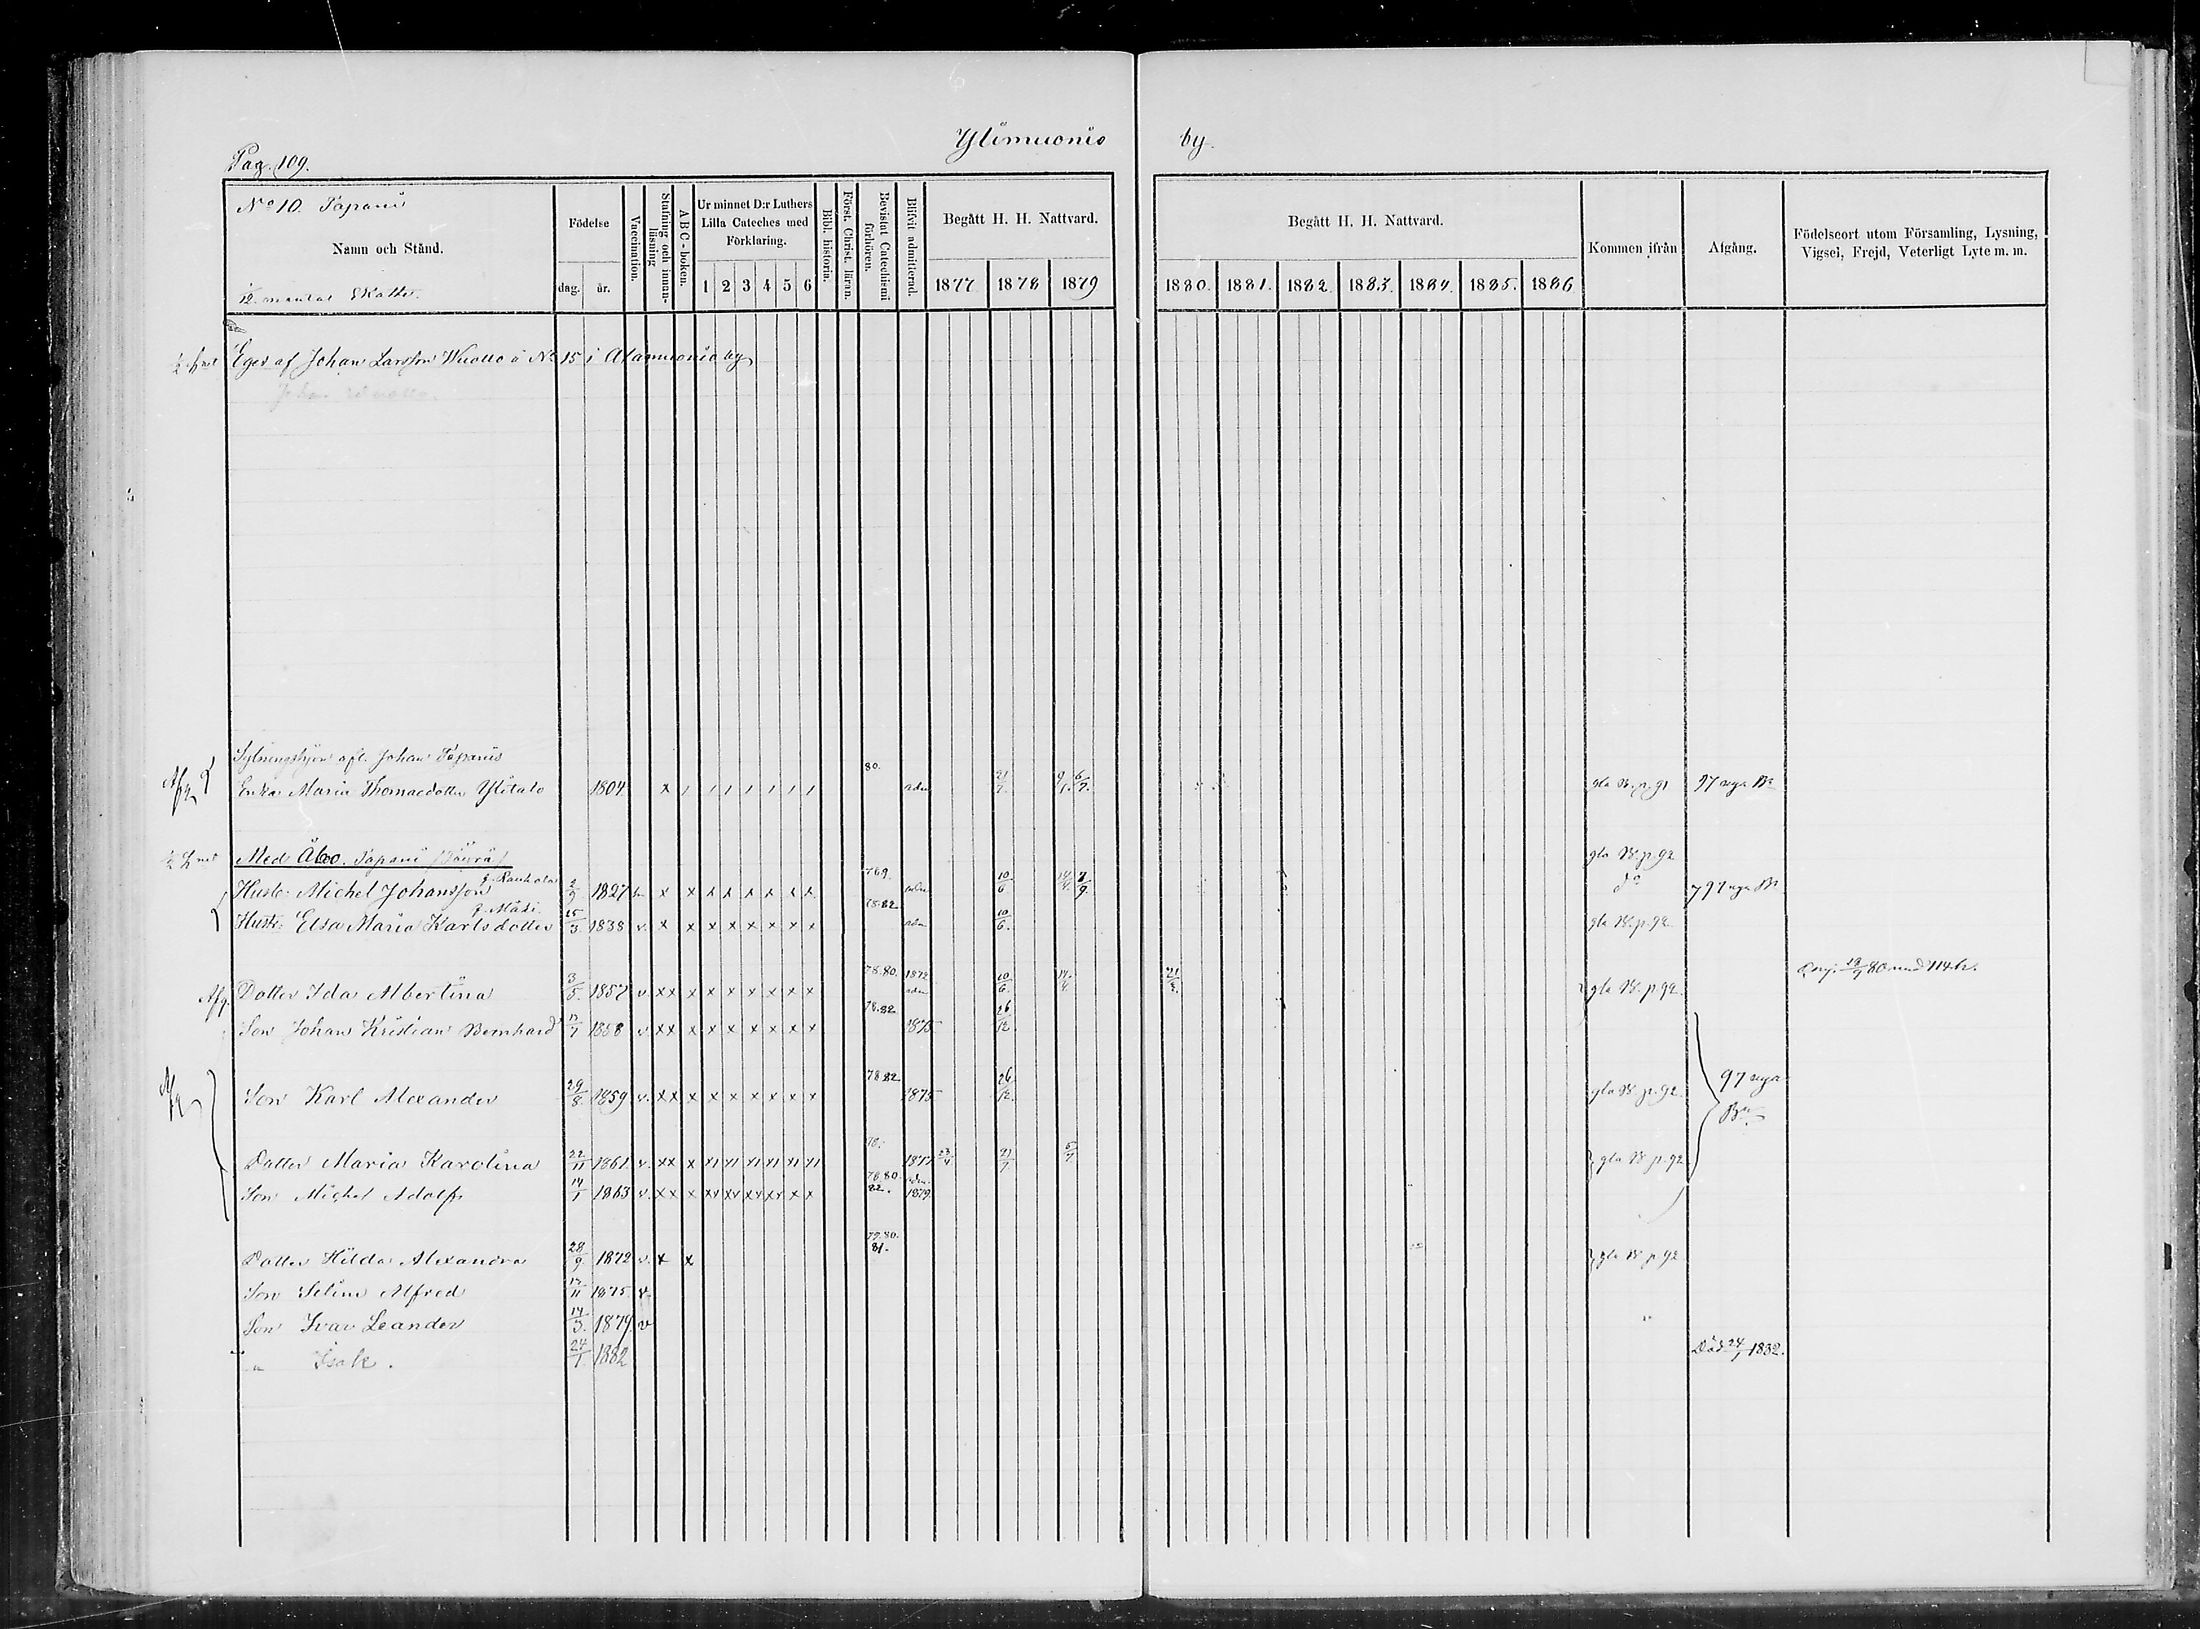 Ylimuonio by.
Pag. 109.
No 10. Tapani
Namn och Stånd.
1/12 mantal Skatte.
Födelse
dag. år.
Vaccination.
Stafning och innanläsning
ABC-boken.
Ur minnet D:r Luthers Lilla Cateches med Förklaring.
1 2 3 4 5 6
Bibl. historia.
Först. Christ. läran.
Bevistat Catechismi förhören.
Blifvit admitterad.
Begått H. H. Nattvard.
1877 1878 1879
Begått H. H. Nattvard.
1880. 1881. 1882. 1883. 1884. 1885. 1886
Kommen ifrån
Afgång.
Födelseort utom Församling, Lysning, Vigsel, Frejd, Veterligt Lyte m. m.
Eges af Johan Larsson Wuolio å No 15 i Alamuonio by
Johan Wuolio.
Sytningshjon afl. Johan Tapanis 80.
Enka Maria Thomasdotter Ylitalo 1804 x / / / / / / / adm 21/7 9/1. 6/7. gla B. p. 91 97 nya Bn
1/2 Med Åbo. Tapani (Täurä) gla B. p. 92
Husb. Michel Johansson f. Rauhala 2/9 1827 v. x x x x x x x x 769. adm 10/6 14/4 7/9. do 97 nya Bn
Hustr: Elsa Maria Karlsdotter f. Mäki 15/3 1838 v. x x x x x x x x 78.82 adm 10/6. gla B. p. 92
Dotter Ida Albertina 3/5. 1857 v xx x x x x x x x 78.80. 1872 adm 10/6. 14/4 21/2. gla B. p. 92. 80 med 114 h.
Son Johan Kristian Bernhard 17/7 1858 v. xx x x x x x x x 78.82 1875 26/12
Son Karl Alexander 29/8. 1859 v. xx x x x x x x x 78 82 1875 26/12. gla B. p. 92. 97 nya Bn
Dotter Maria Karolina 22/11 1861. v. xx x 78. 1877 23/4 21/7 6/7 gla B. p. 92
Son Michel Adolf 14/1 1863 v. xx x 78.80. 82. adm. 1879.
Dotter Hilda Alexandra 28/9 1872 v. x x 79.80. 81. gla B. p. 92
Son Selim Alfred 17/11 1875. v.
Son Ivar Leander 14/3. 1879. v "
" Isak. 24/1. 1882 Död 24/1 1882.